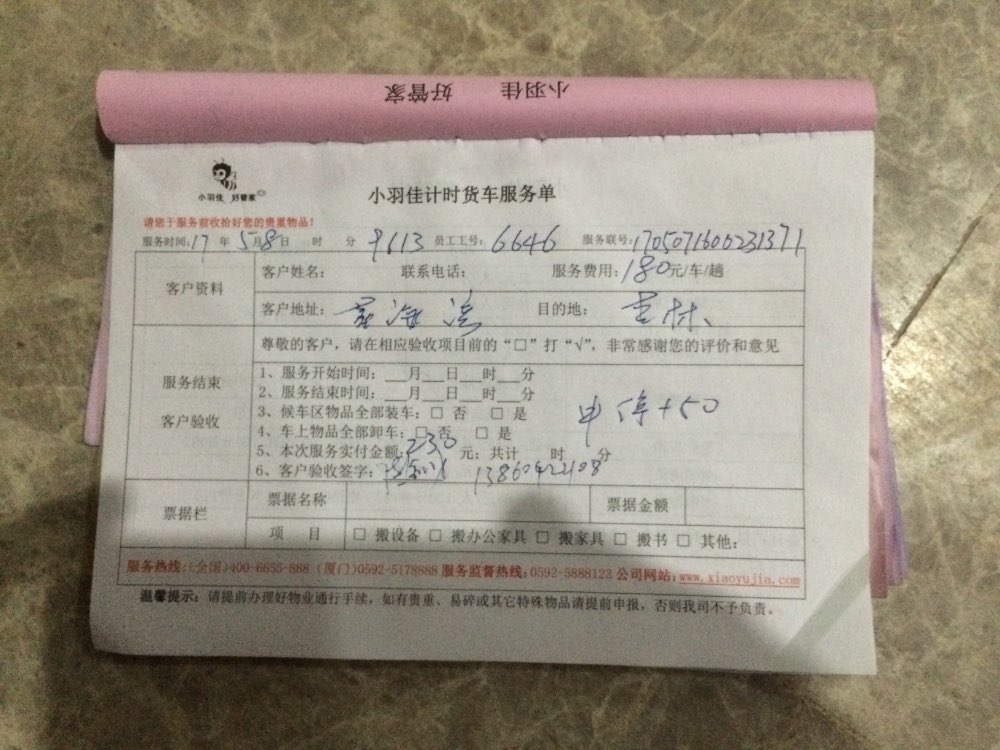 小羽佳 好管家
小羽佳 好管家
小羽佳计时货车服务单
请您于服务前收拾好您的贵重物品!
服务时间:17年5月8日 时 分 9613 员工工号:6646 服务联号:1705071600231371
客户资料
客户姓名: 联系电话: 服务费用:180元/车/趟
客户地址: 目的地:
服务结束
客户验收
尊敬的客户,请在相应验收项目前的“□”打“√”,非常感谢您的评价和意见
1、服务开始时间:___月___日___时___分
2、服务结束时间:___月___日___时___分
3、候车区物品全部装车:□ 否 □ 是
中停+50
4、车上物品全部卸车:□ 否 □ 是
5、本次服务实付金额:230元;共计 时 分
6、客户验收签字: 13860422408
票据栏
票据名称 票据金额
项 目 □ 搬设备 □ 搬办公家具 □ 搬家具 □ 搬书 □ 其他:
服务热线:(全国)400-6655-888 (厦门)0592-5178888 服务监督热线:0592-5888123 公司网站:www.xiaoyujia.com
温馨提示:请提前办理好物业通行手续,如有贵重、易碎或其它特殊物品请提前申报,否则我司不予负责。